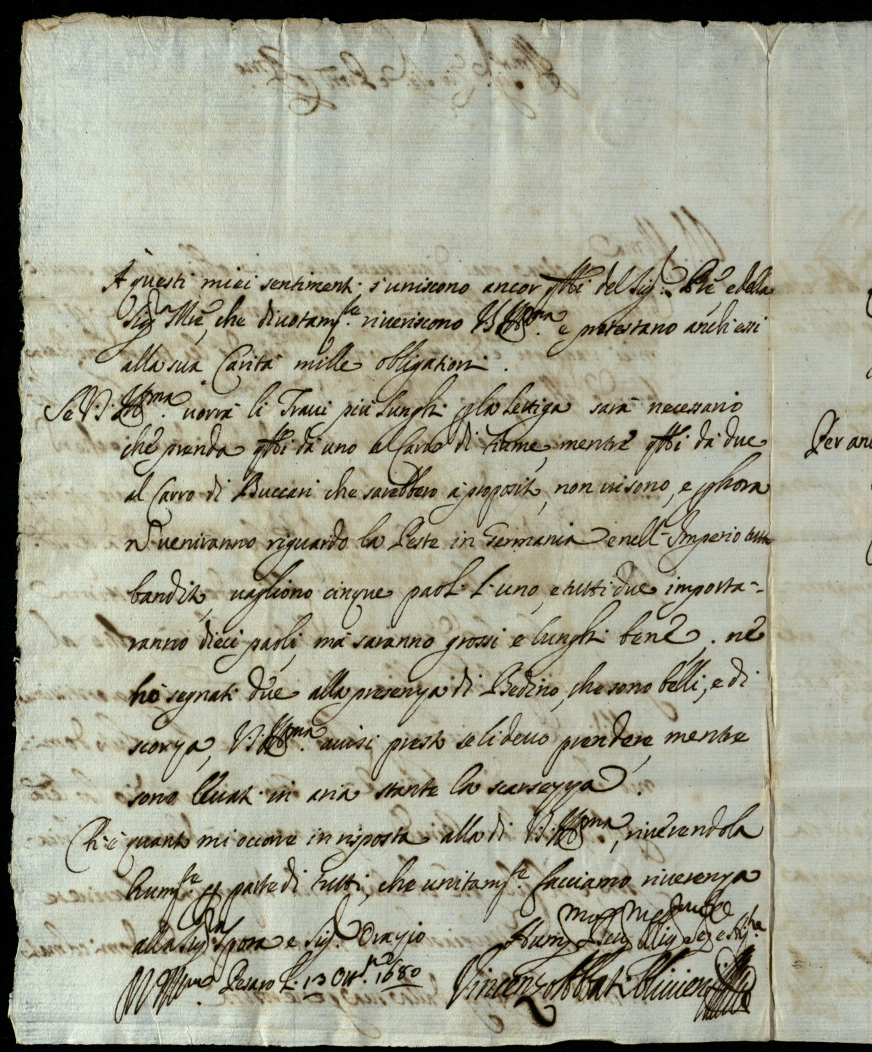 A questi miei sentimenti s'uniscono ancor qlli del Sig.r Pre e della
Sig.ra Mre, che divotam.te riveriscono V.S. Ill.ma e protestano anch'essi
alla sua Carità mille obligationi.
Se V.S. Ill.ma vorrà li Travi più lunghi p la Lettiga sarà necessario
che prenda qlli da uno al Carro di Fiume, mentre qlli da due
al Carro di Buccari che sarebbero à proposito, non vi sono, e p hora
nè veniranno riguardo la Peste in Germania e nell'Imperio tutto
banditi, vagliono cinque paoli l'uno, e tutti due importa-
ranno dieci paoli, mà saranno grossi e lunghi bene, nè
hò segnati due alla presenza di Bedino, che sono belli, e di
scorza, V.S. Ill.ma avvisi presto se li devo prendere, mentre
sono levati in aria stante la scarsezza.
Ch'è quanto mi occorre in risposta alla di V.S. Ill.ma, riverendola
hum.te p parte di tutti, che unitam.te facciamo riverenza
alla Sig.ra Spora e Sig.r Orazio
V.S. Ill.ma Pesaro L. 13 Ott.re 1680
Hum. Dev. Obblig. Se.
Vincenzo Abbati Olivieri
Per